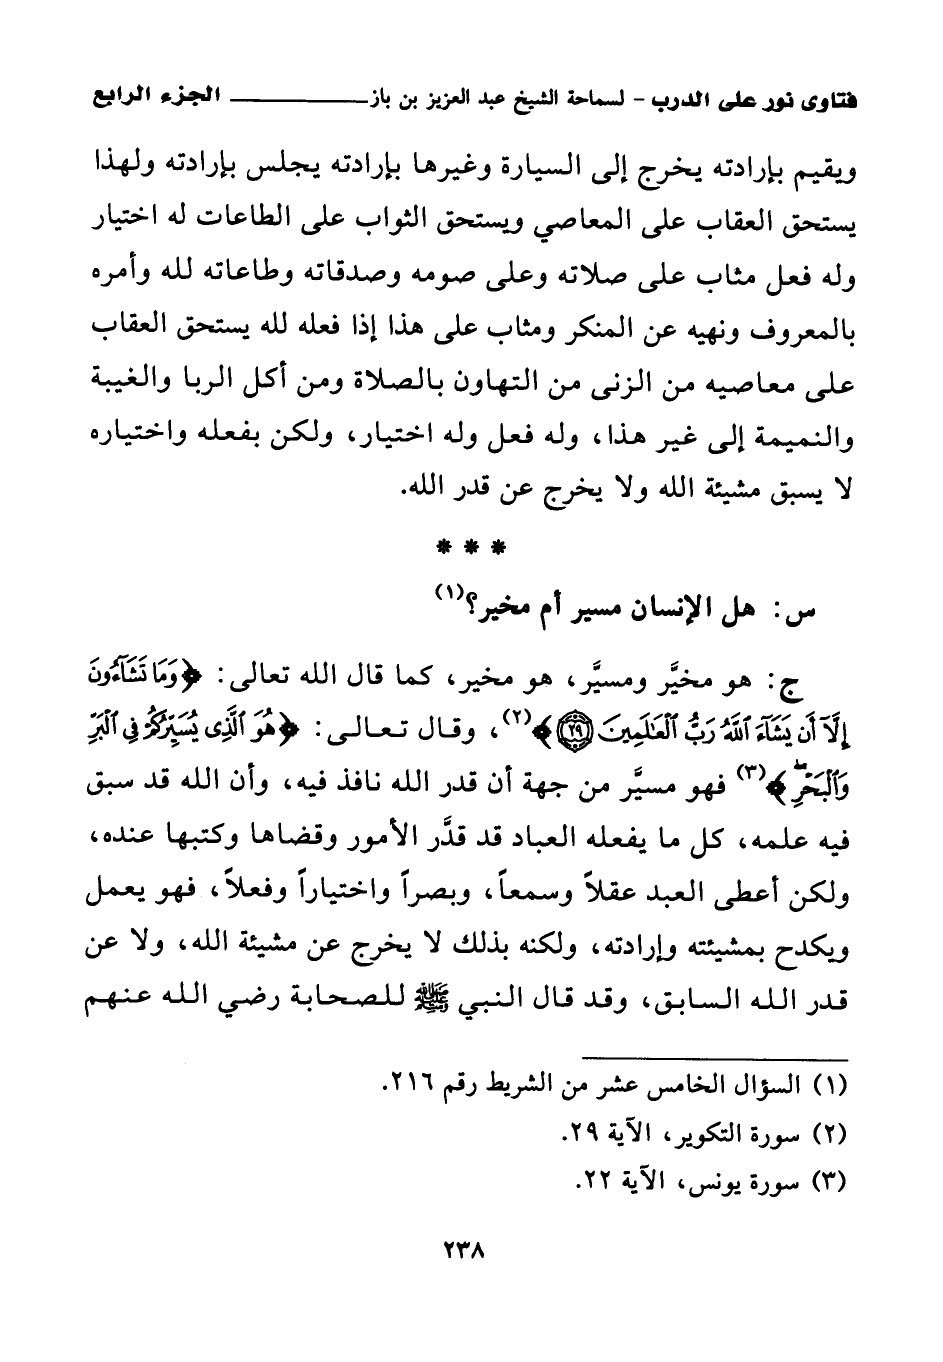 فتاوى نور على الدرب - لسماحة الشيخ عبد العزيز بن باز ـــــــــــــ الجزء الرابع
ويقيم بإرادته يخرج إلى السيارة وغيرها بإرادته يجلس بإرادته ولهذا
يستحق العقاب على المعاصي ويستحق الثواب على الطاعات له اختيار
وله فعل مثاب على صلاته وعلى صومه وصدقاته وطاعاته لله وأمره
بالمعروف ونهيه عن المنكر ومثاب على هذا إذا فعله لله يستحق العقاب
على معاصيه من الزنى من التهاون بالصلاة ومن أكل الربا والغيبة
والنميمة إلى غير هذا، وله فعل وله اختيار، ولكن بفعله واختياره
لا يسبق مشيئة الله ولا يخرج عن قدر الله.
* * *
س: هل الإنسان مسير أم مخير؟(١)
ج: هو مخيَّر ومسيَّر، هو مخير، كما قال الله تعالى: ﴿وَمَا تَشَآءُونَ
إِلَّآ أَن يَشَآءَ ٱللَّهُ رَبُّ ٱلْعَٰلَمِينَ ٢٩﴾(٢)، وقال تعالى: ﴿هُوَ ٱلَّذِى يُسَيِّرُكُمْ فِى ٱلْبَرِّ
وَٱلْبَحْرِ﴾(٣) فهو مسيَّر من جهة أن قدر الله نافذ فيه، وأن الله قد سبق
فيه علمه، كل ما يفعله العباد قد قدَّر الأمور وقضاها وكتبها عنده،
ولكن أعطى العبد عقلاً وسمعاً، وبصراً واختياراً وفعلاً، فهو يعمل
ويكدح بمشيئته وإرادته، ولكنه بذلك لا يخرج عن مشيئة الله، ولا عن
قدر الله السابق، وقد قال النبي ﷺ للصحابة رضي الله عنهم
(١) السؤال الخامس عشر من الشريط رقم ٢١٦.
(٢) سورة التكوير، الآية ٢٩.
(٣) سورة يونس، الآية ٢٢.
٢٣٨